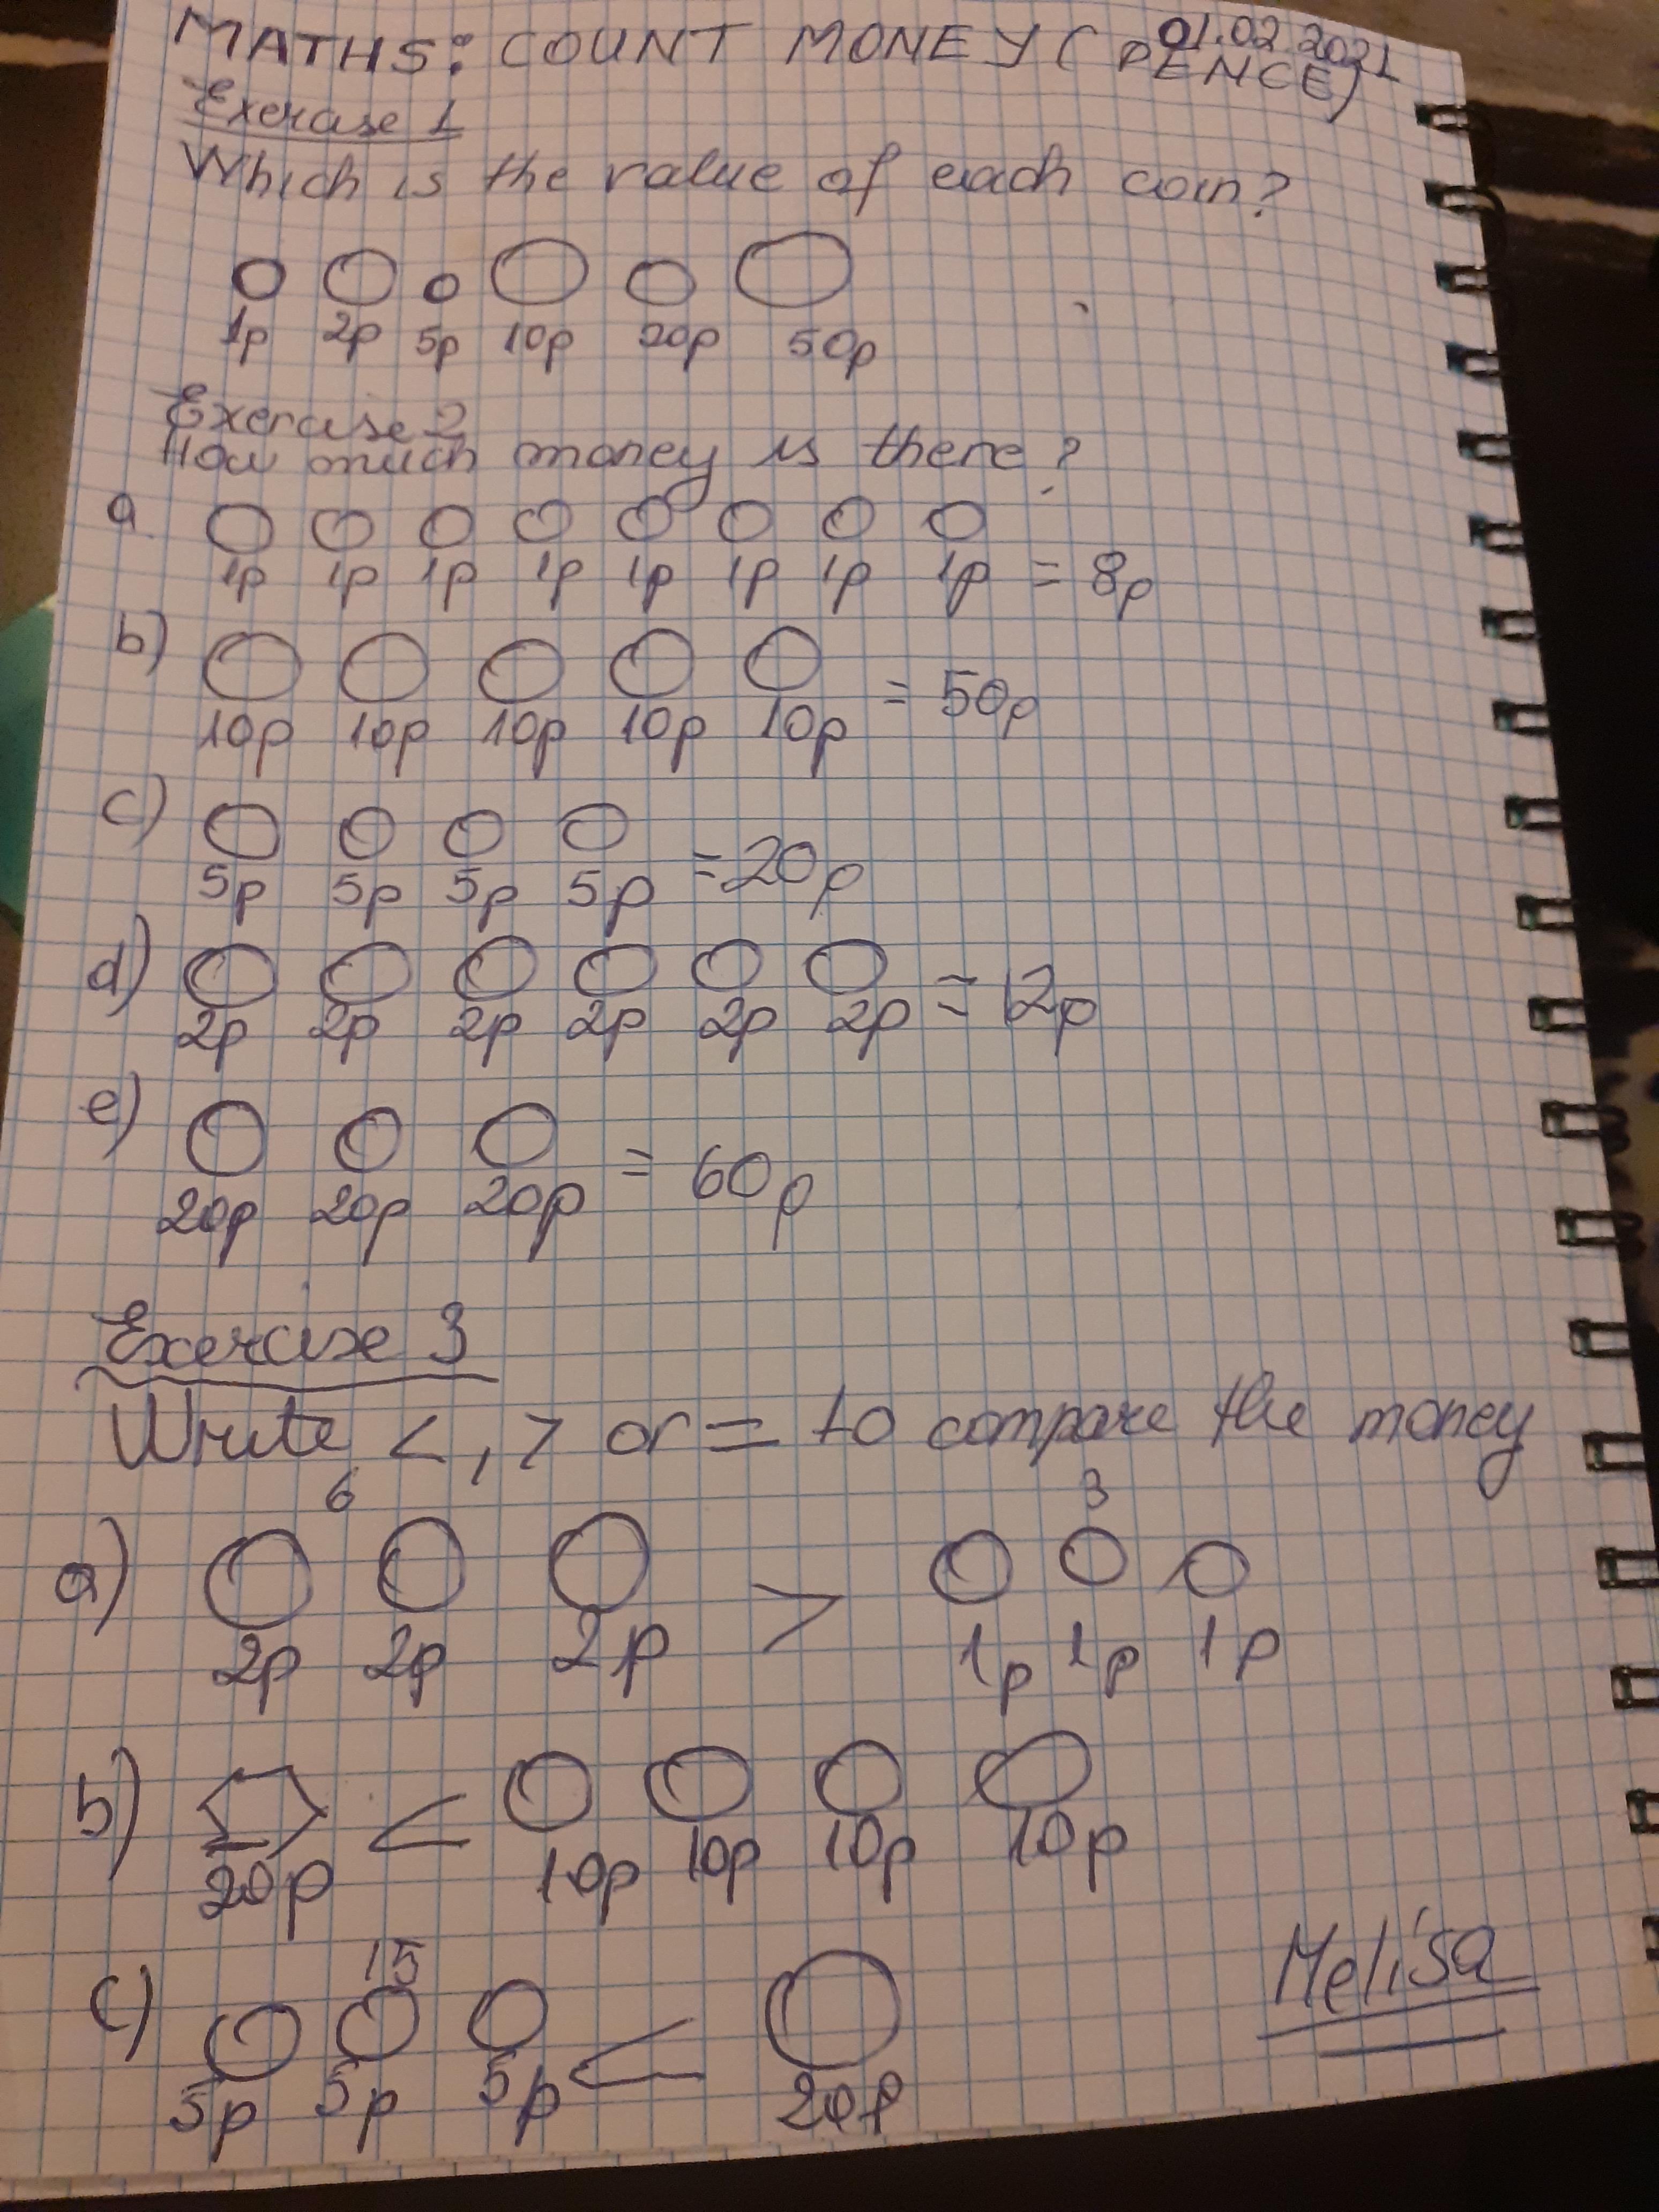 01.02.2021
MATHS: COUNT MONEY (PENCE)
Exercise 1
Which is the value of each coin?
1p 2p 5p 10p 20p 50p
Exercise 2
How much money is there?
a 1p 1p 1p 1p 1p 1p 1p 1p = 8p
b) 10p 10p 10p 10p 10p = 50p
c) 5p 5p 5p 5p = 20p
d) 2p 2p 2p 2p 2p 2p = 12p
e) 20p 20p 20p = 60p
Exercise 3
Write <, > or = to compare the money
6 3
a) 2p 2p 2p > 1p 1p 1p
b) 20p < 10p 10p 10p 10p
15
c) 5p 5p 5p < 20p
Melisa